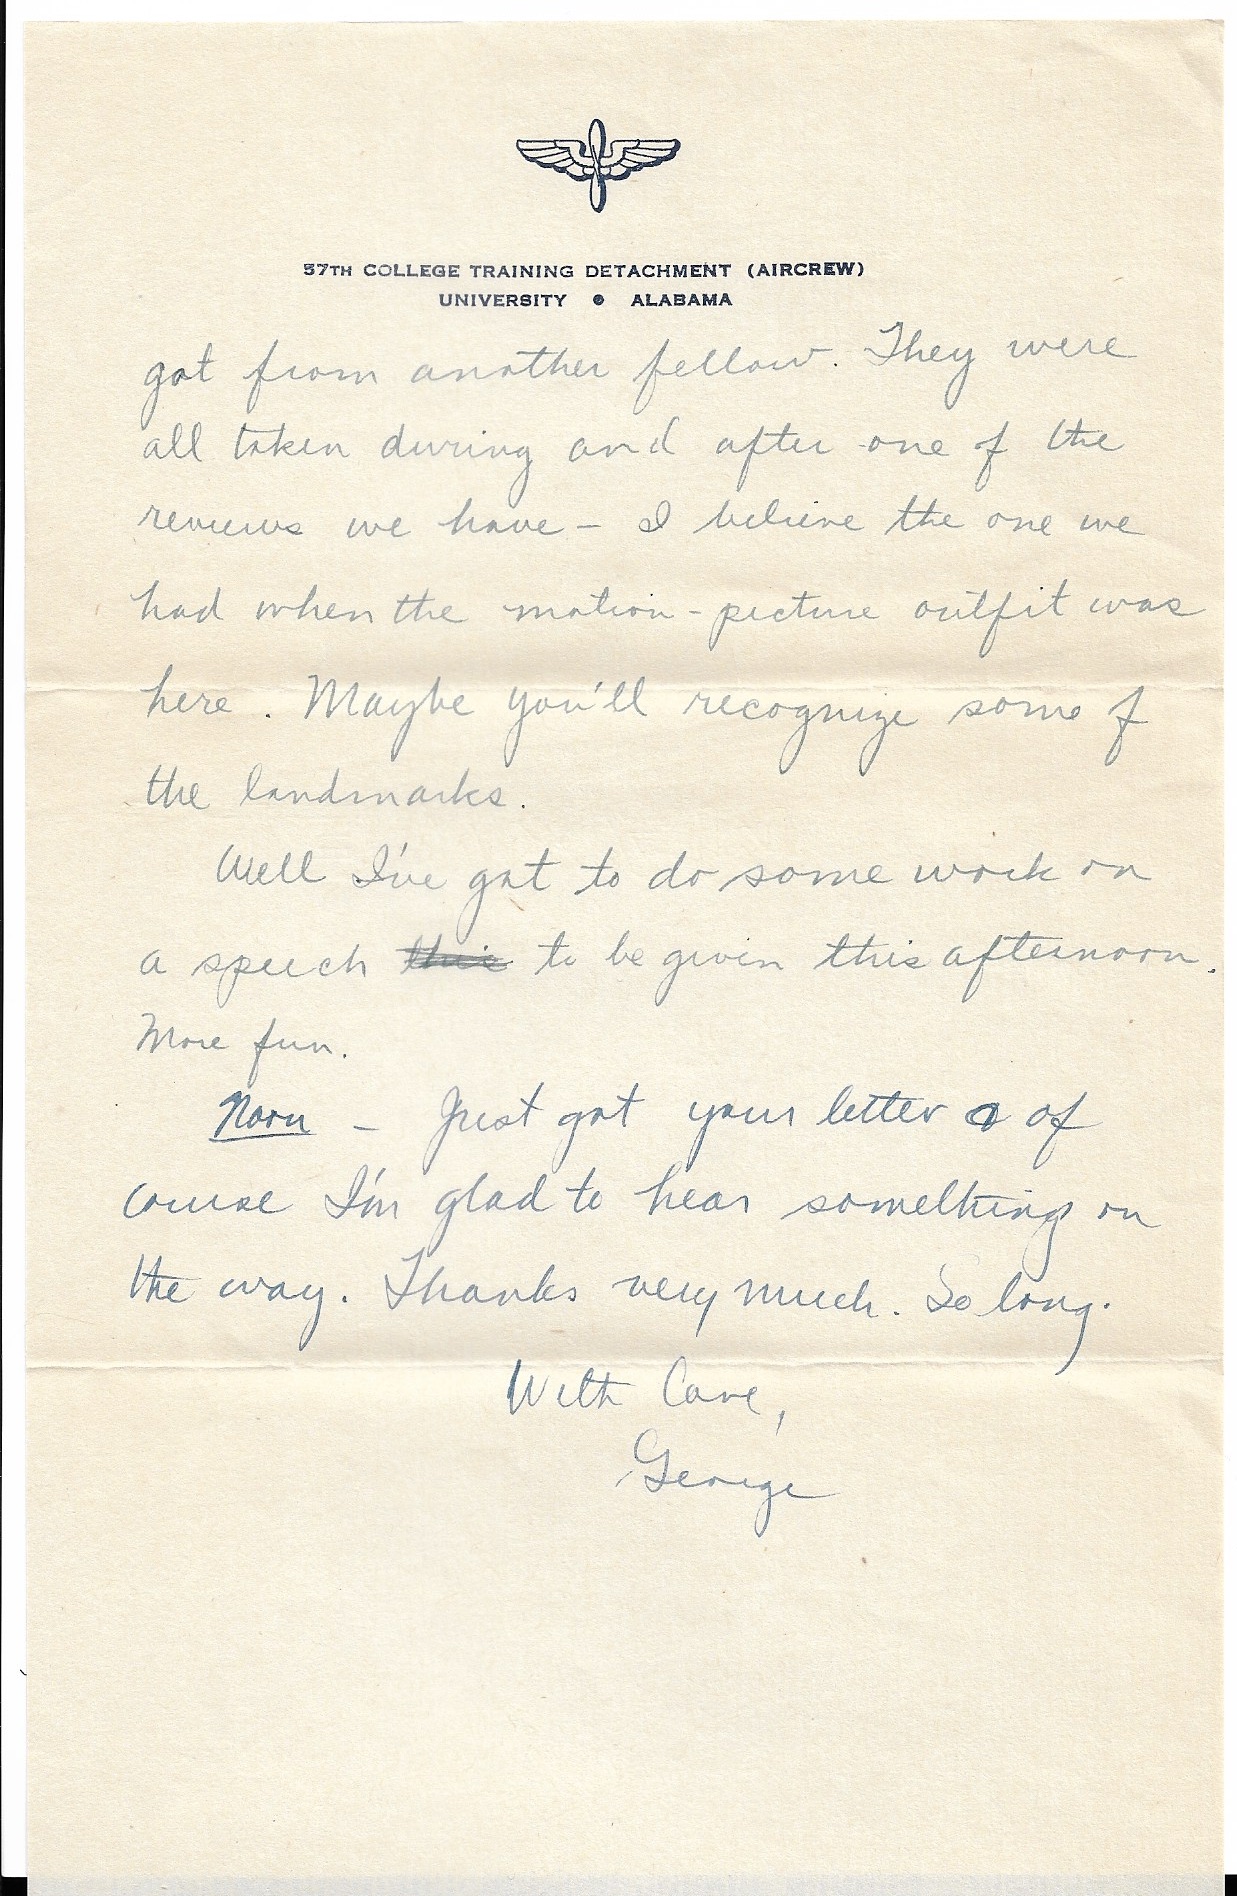 57TH COLLEGE TRAINING DETACHMENT (AIRCREW)
UNIVERSITY • ALABAMA
got from another fellow. They were
all taken during and after one of the
reviews we have – I believe the one we
had when the motion-picture outfit was
here. Maybe you'll recognize some of
the landmarks.
Well I've got to do some work on
a speech this to be given this afternoon.
More fun.
Noon – Just got your letter & of
course I'm glad to hear something on
the way. Thanks very much. So long.
With Love,
George